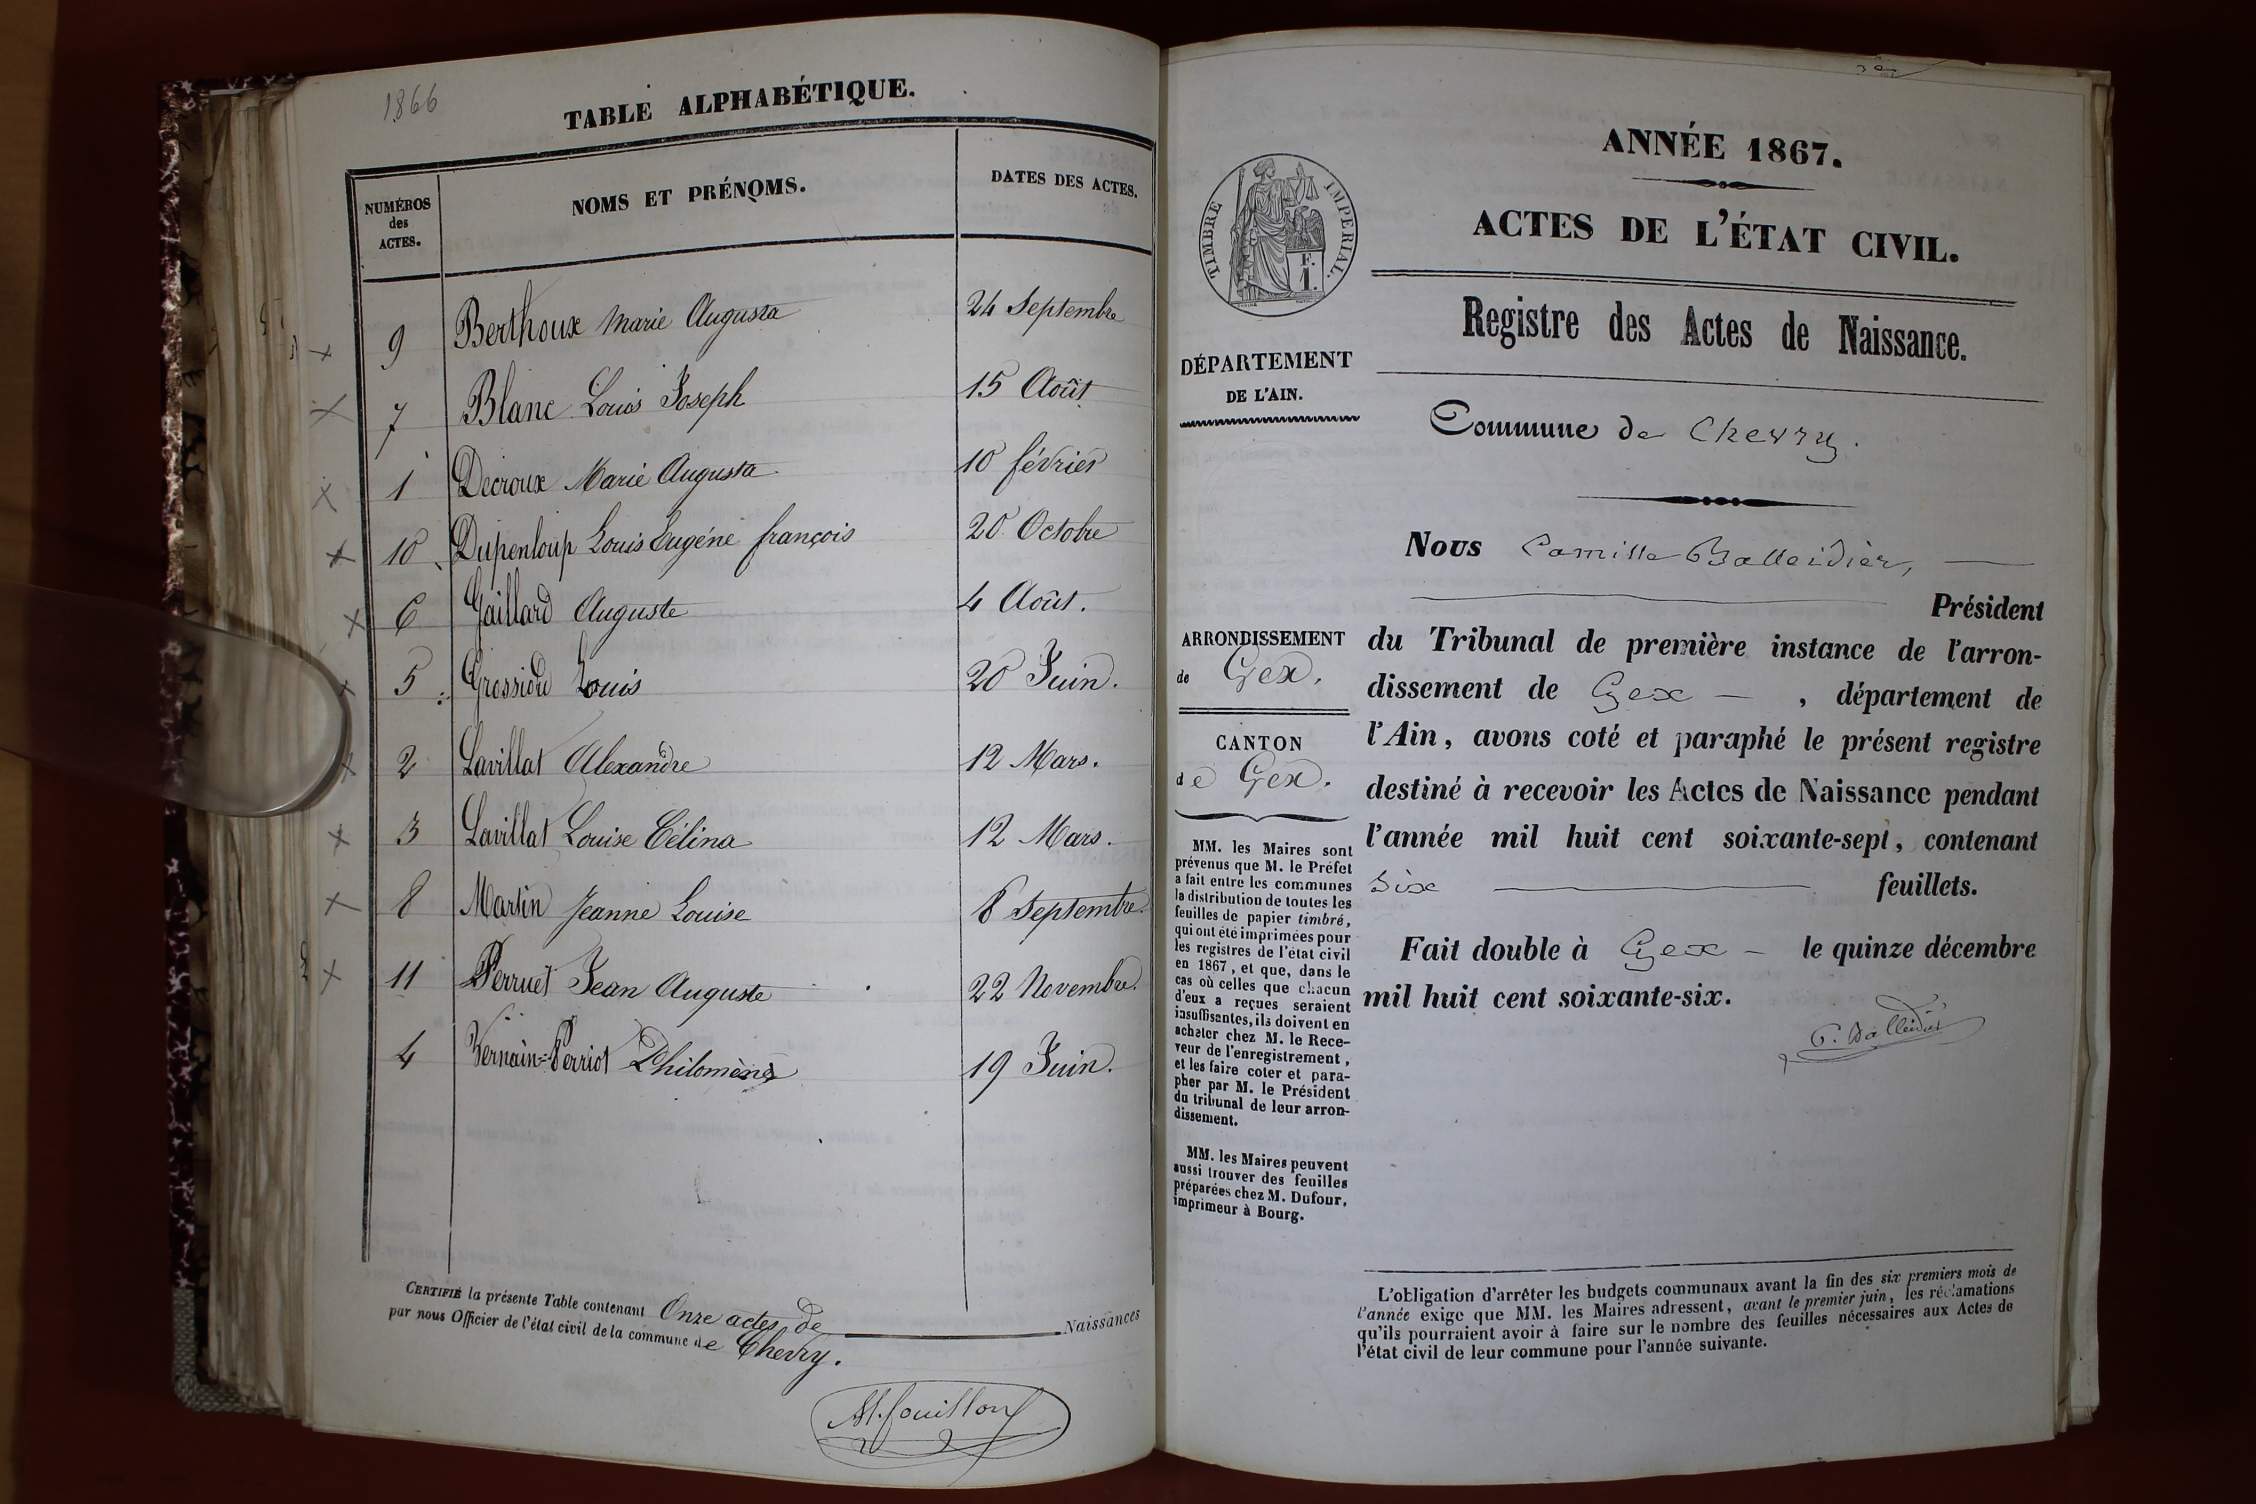 1866
TABLE ALPHABÉTIQUE.
NUMÉROS
des
ACTES.
NOMS ET PRÉNOMS.
DATES DES ACTES.
9 Berthoux Marie Augusta 24 Septembre
7 Blanc Louis Joseph 15 Août
1 Decroux Marie Augusta 10 février
10 Dupenloup Louis Eugéne françois 20 Octobre
6 Gaillard Auguste 4 Août.
5 Grossiord Louis 20 Juin.
2 Lavillat Alexandre 12 Mars.
3 Lavillat Louise Célina 12 Mars.
8 Martin Jeanne Louise 8 Septembre.
11 Perruet Jean Auguste 22 Novembre.
4 Vernain=Perriot Philomène 19 Juin.
CERTIFIÉ la présente Table contenant Onze actes de Naissances
par nous Officier de l'état civil de la commune de Chevry.
ANNÉE 1867.
ACTES DE L'ÉTAT CIVIL.
TIMBRE IMPERIAL.
F.
1.
Registre des Actes de Naissance.
DÉPARTEMENT
DE L'AIN.
Commune de Chevry.
ARRONDISSEMENT
de Gex.
CANTON
de Gex.
MM. les Maires sont
prévenus que M. le Préfet
a fait entre les communes
la distribution de toutes les
feuilles de papier timbré,
qui ont été imprimées pour
les registres de l'état civil
en 1867, et que, dans le
cas où celles que chacun
d'eux a reçues seraient
insuffisantes, ils doivent en
acheter chez M. le Rece-
veur de l'enregistrement,
et les faire coter et para-
pher par M. le Président
du tribunal de leur arron-
dissement.
MM. les Maires peuvent
aussi trouver des feuilles
préparées chez M. Dufour,
imprimeur à Bourg.
Nous Camille Balleidier,
Président
du Tribunal de première instance de l'arron-
dissement de Gex, département de
l'Ain, avons coté et paraphé le présent registre
destiné à recevoir les Actes de Naissance pendant
l'année mil huit cent soixante-sept, contenant
six feuillets.
Fait double à Gex le quinze décembre
mil huit cent soixante-six.
C. Balleidier
L'obligation d'arrêter les budgets communaux avant la fin des six premiers mois de
l'année exige que MM. les Maires adressent, avant le premier juin, les réclamations
qu'ils pourraient avoir à faire sur le nombre des feuilles nécessaires aux Actes de
l'état civil de leur commune pour l'année suivante.